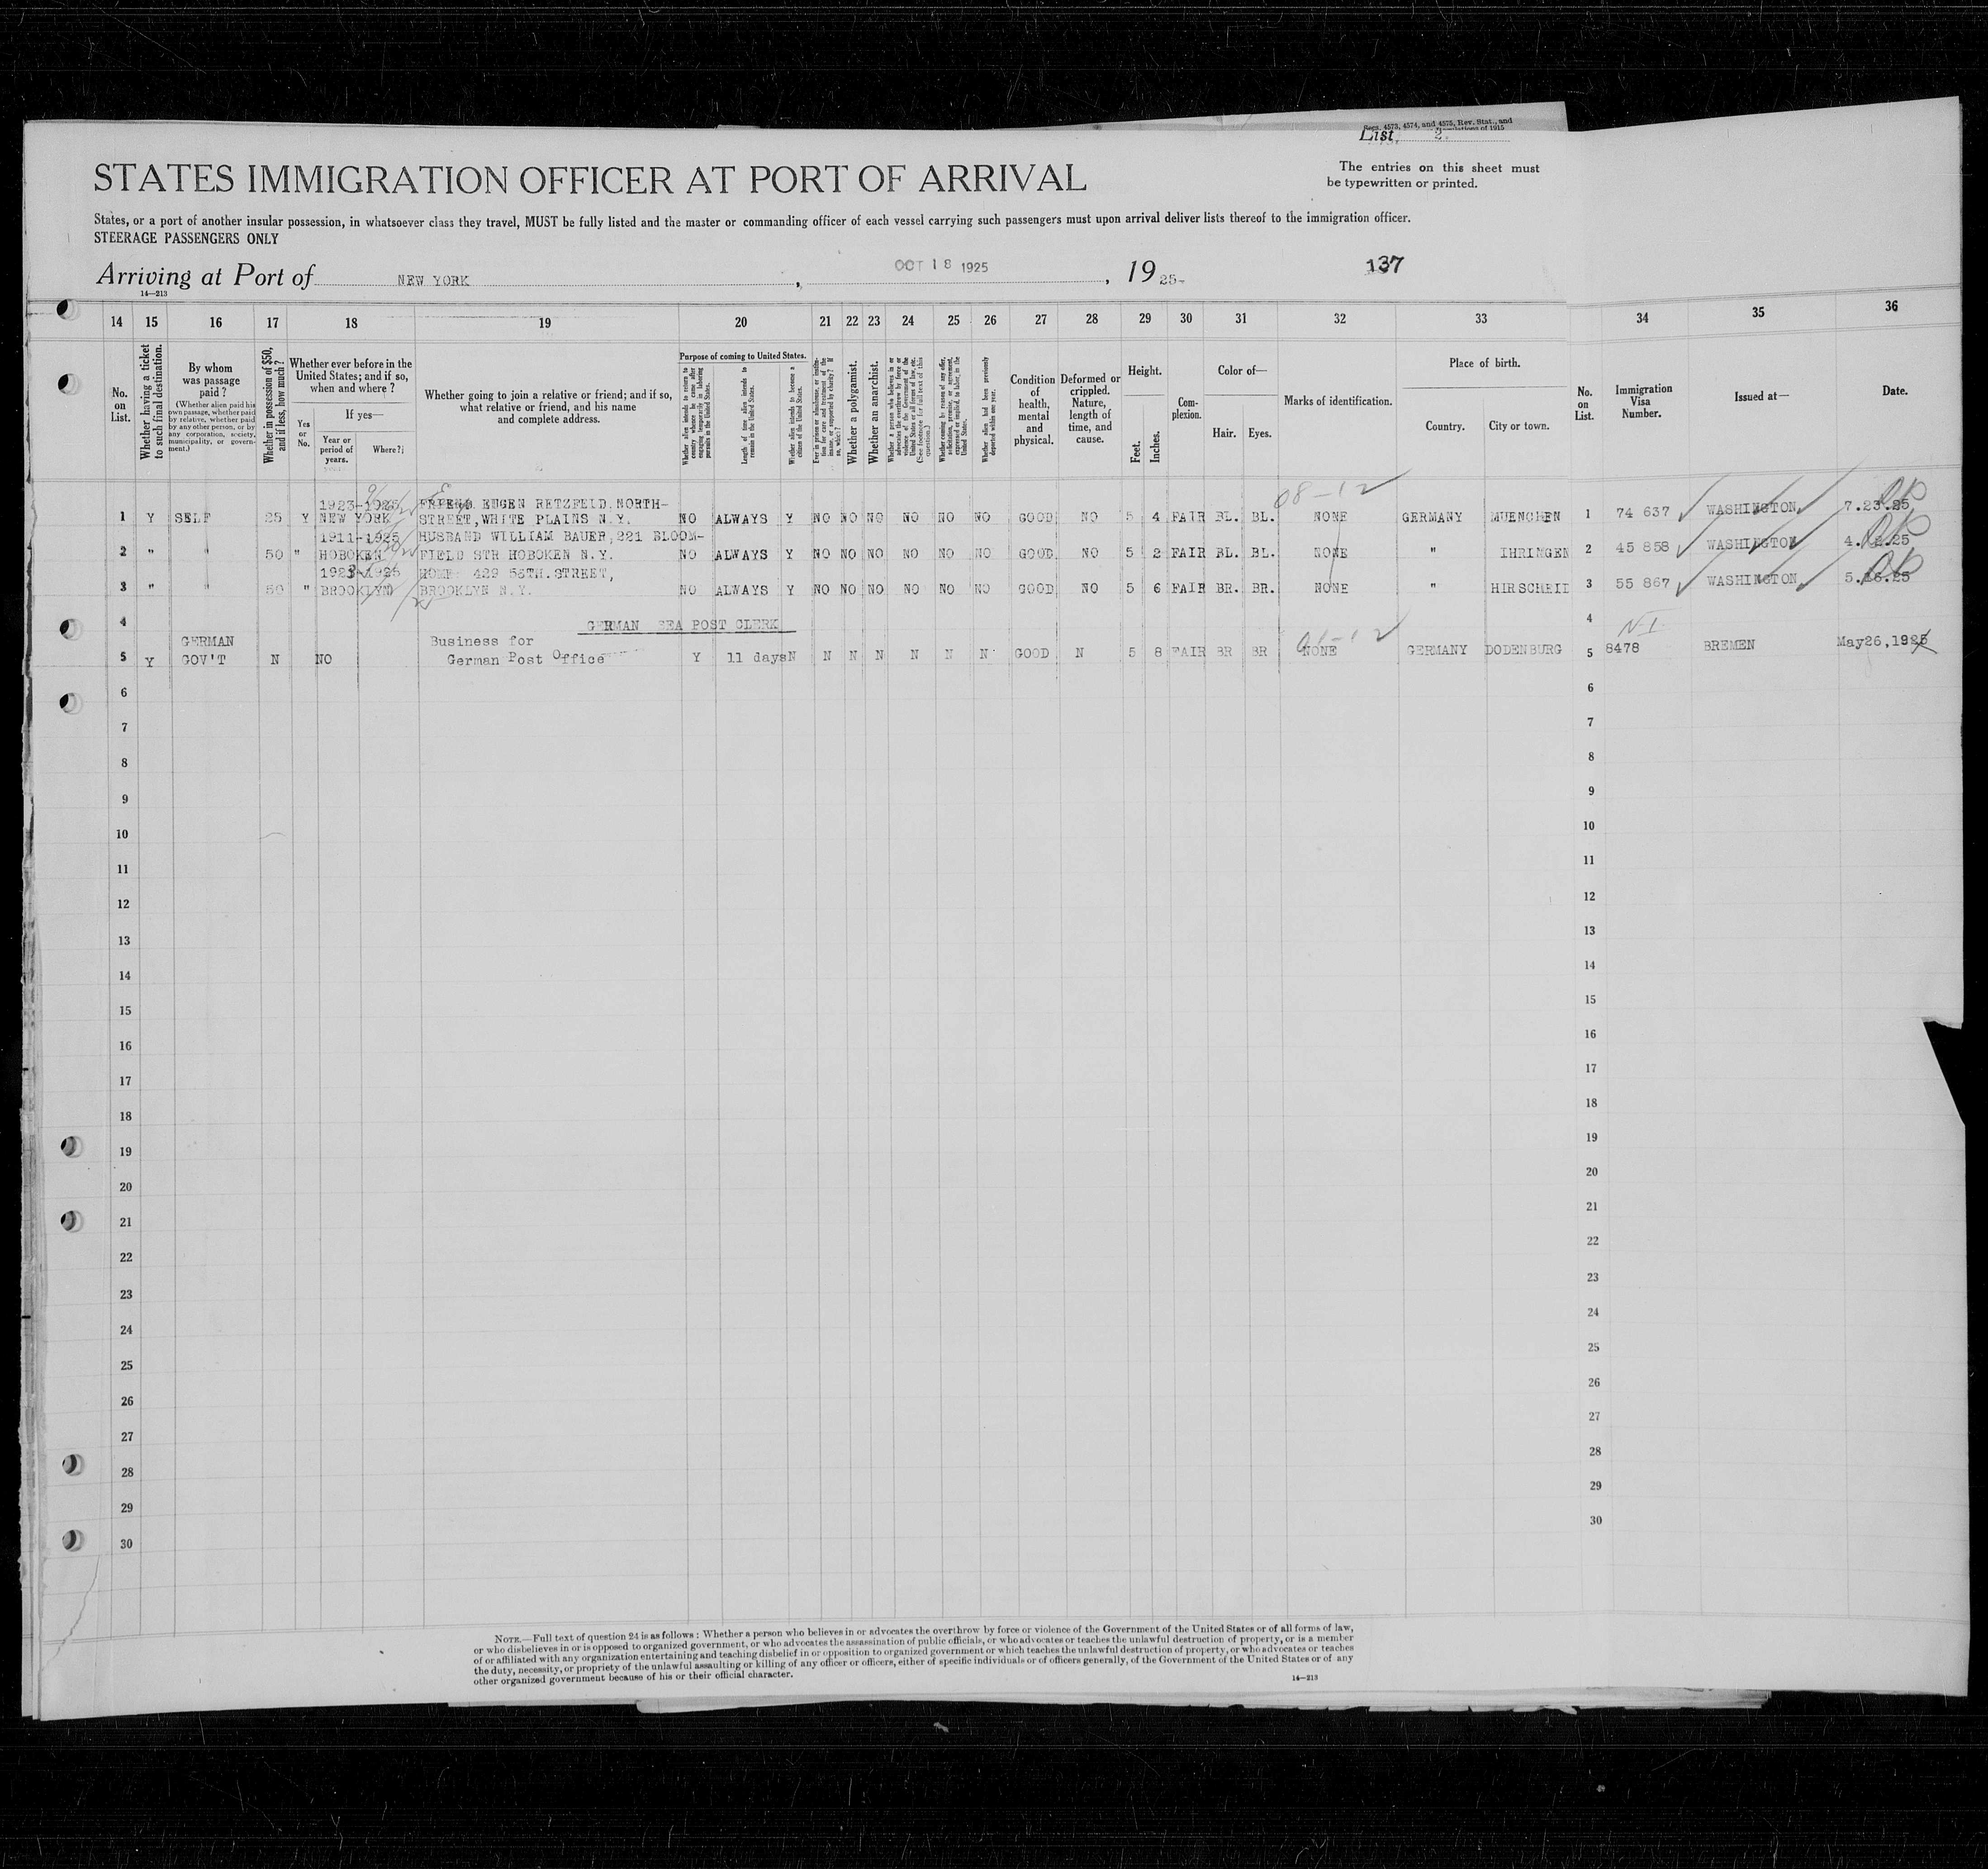 Secs. 4573, 4574, and 4575, Rev. Stat., and
List 2.
The entries on this sheet must
be typewritten or printed.
STATES IMMIGRATION OFFICER AT PORT OF ARRIVAL
States, or a port of another insular possession, in whatsoever class they travel, MUST be fully listed and the master or commanding officer of each vessel carrying such passengers must upon arrival deliver lists thereof to the immigration officer.
STEERAGE PASSENGERS ONLY
Arriving at Port of NEW YORK, OCT 18 1925, 19 25-
137
14—213
14 15 16 17 18 19 20 21 22 23 24 25 26 27 28 29 30 31 32 33 34 35 36
No. on List.
Whether having a ticket to such final destination.
By whom was passage paid?
(Whether alien paid his own passage, whether paid by relative, whether paid by any other person, or by any corporation, society, municipality, or government.)
Whether in possession of $50, and if less, how much?
Whether ever before in the United States; and if so, when and where?
Yes or No.
If yes—
Year or period of years.
Where?
Whether going to join a relative or friend; and if so, what relative or friend, and his name and complete address.
Purpose of coming to United States.
Whether alien intends to return to country whence he came after engaging temporarily in laboring pursuits in the United States.
Length of time alien intends to remain in the United States.
Whether alien intends to become a citizen of the United States.
Ever in prison or almshouse, or institution for care and treatment of the insane, or supported by charity? If so, which?
Whether a polygamist.
Whether an anarchist.
Whether a person who believes in or advocates the overthrow by force or violence of the Government of the United States or all forms of law, etc. (See footnote for full text of this question.)
Whether coming by reason of any offer, solicitation, promise, or agreement, expressed or implied, to labor, in the United States.
Whether alien had been previously deported within one year.
Condition of health, mental and physical.
Deformed or crippled. Nature, length of time, and cause.
Height.
Feet. Inches.
Complexion.
Color of—
Hair. Eyes.
Marks of identification.
Place of birth.
Country. City or town.
No. on List.
Immigration Visa Number.
Issued at—
Date.
08-12
1923-1925 FRIEND EUGEN RETZFELD NORTH-
1 Y SELF 25 Y NEW YORK STREET, WHITE PLAINS N.Y. NO ALWAYS Y NO NO NO NO NO NO GOOD NO 5 4 FAIR BL. BL. NONE GERMANY MUENCHEN 1 74 637 WASHINGTON 7.23.25
1911-1925 HUSBAND WILLIAM BAUER, 221 BLOOM-
2 " " 50 " HOBOKEN FIELD STR HOBOKEN N.Y. NO ALWAYS Y NO NO NO NO NO NO GOOD NO 5 2 FAIR BL. BL. NONE " IHRINGEN 2 45 858 WASHINGTON
1923-1925 HOME 429 56TH. STREET,
3 " " 50 " BROOKLYN BROOKLYN N.Y. NO ALWAYS Y NO NO NO NO NO NO GOOD NO 5 6 FAIR BR. BR. NONE " HIRSCHEID 3 55 867 WASHINGTON
4 GERMAN SEA POST CLERK 4
GERMAN Business for N-I
5 Y GOV'T N NO German Post Office Y 11 days N N N N N N N GOOD N 5 8 FAIR BR BR NONE GERMANY DODENBURG 5 8478 BREMEN May 26, 1925
6 6
7 7
8 8
9 9
10 10
11 11
12 12
13 13
14 14
15 15
16 16
17 17
18 18
19 19
20 20
21 21
22 22
23 23
24 24
25 25
26 26
27 27
28 28
29 29
30 30
NOTE.—Full text of question 24 is as follows: Whether a person who believes in or advocates the overthrow by force or violence of the Government of the United States or of all forms of law,
or who disbelieves in or is opposed to organized government, or who advocates the assassination of public officials, or who advocates or teaches the unlawful destruction of property, or is a member
of or affiliated with any organization entertaining and teaching disbelief in or opposition to organized government or which teaches the unlawful destruction of property, or who advocates or teaches
the duty, necessity, or propriety of the unlawful assaulting or killing of any officer or officers, either of specific individuals or of officers generally, of the Government of the United States or of any
other organized government because of his or their official character.
14—213